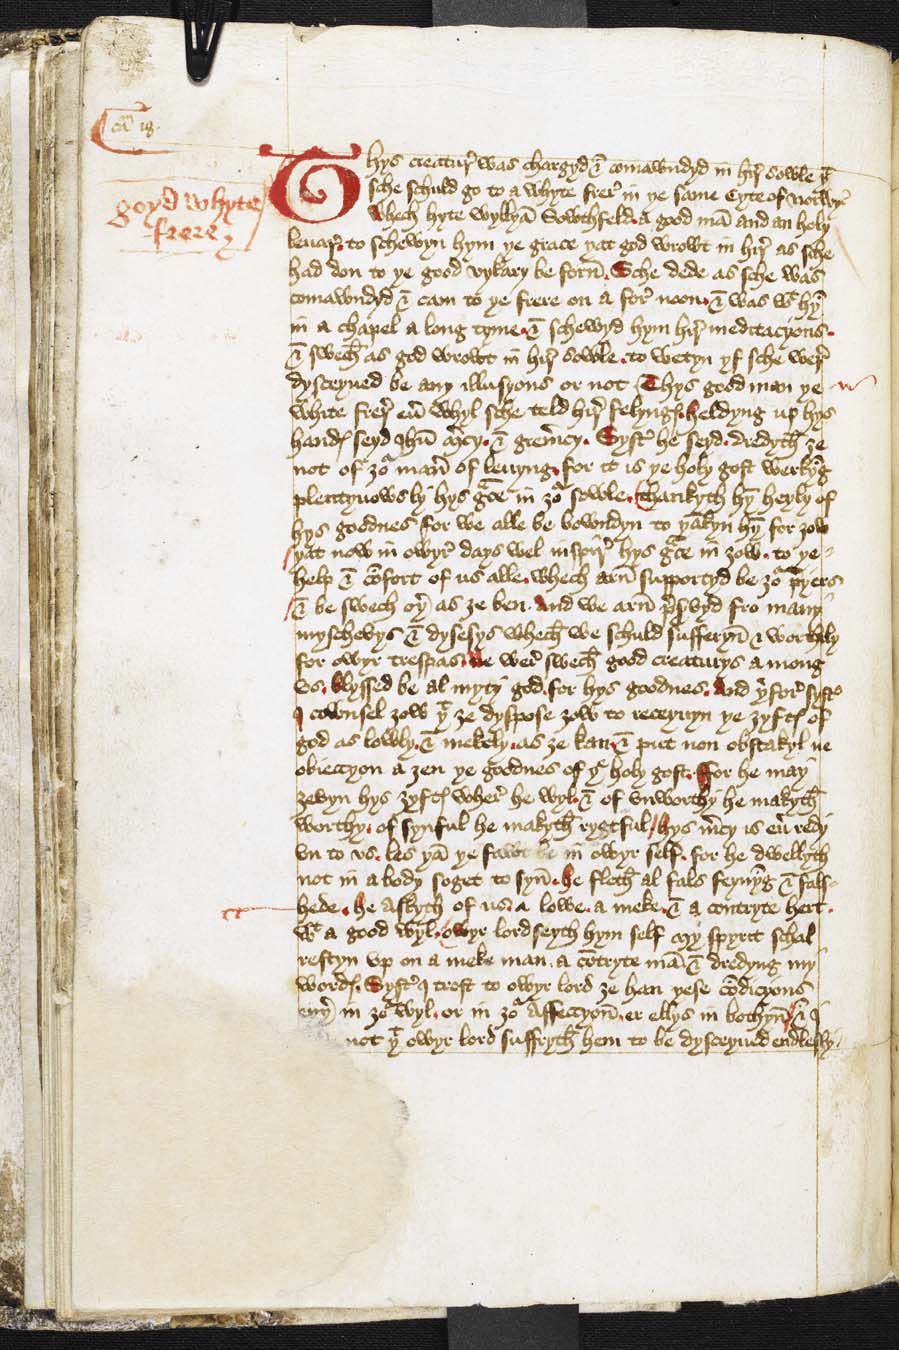 ca 18
goyd whyte
frere
Thys creatur was chargyd & comawndyd in hir sowle yt
sche schuld go to a whyte frer in ye same Cyte of Norwych
Whech hyte wyllyā Sowthfeld. a good mā and an holy
leuar. to schewyn hym ye grace yat god wrowt in hir as sche
had don to ye good vykary be forn. Sche dede as sche was
comawndyd & cam to ye frere on a for noon. & was wt hȳ
in a chapel a long tyme. & schewyd hym hir meditacyons.
& swech as god wrowt in hir sowle. to wetyn yf sche wer
dysceyued be any illusyons or not Thys good man ye
white frer euyr whyl sche teld hir felyngs. heldyng up hys
hands seyd Ihū mcy. & gremcy. Syster he seyd. dredyth ze
not of zor maner of leuyng. for it is ye holy gost werkyng
plentyuowsly hys gce in zor sowle. thankyth hȳ heyly of
hys goodnes for we alle be bowndyn to yākyn hȳ for zow
yat now in owyr days wel inspyr hys gce in zow. to ye
help & cōfort of us alle. whech arn supportyd be zor pyers
& be swech oyr as ze ben. And we arn presuyd fro many
myschevys & dysesys whech we schuld sufferyn & worthyly
for owyr trespas. Ne wer swech good creaturys a mong
vs. blyssed be al myty god. for hys goodnes. And yrfor syster
I cownsel zow yt ze dyspose zow to receyuyn ye zyfts of
god as lowly. & mekely. as ze kan. & put non obstakyl ne
obiectyon a zen ye goodnes of ye holy gost. For he may
zevyn hys zyfts wher he wyl. & of vnworthy he makyth
worthy. of synful he makyth rygtful. hys mcy is euyr redy
vn to vs. les yā ye fawt be in owyr self. for he dwellyth
not in a body soget to syn. he fleth al fals feynyng & fals
hede. he askyth of us. a lowe. a meke. & a contryte hert.
wt a good wyl. owyr lord seyth hym self my spyrit schal
restyn vp on a meke man. a cōtryte mā. & dredyng my
words. Syster I trost to owyr lord ze han yese cōdicyons
eny in zor wyl. or in zor affectyon. er ellys in bothyn. & I
not yt owyr lord suffryth hem to be dysceyued endlesly